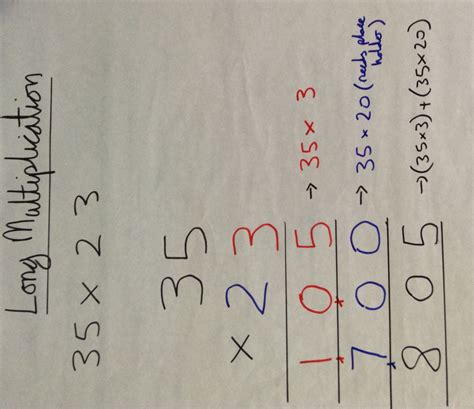 Long Multiplication
35 × 23
35
× 23
105 → 35 × 3
700 → 35 × 20 (needs place holder)
805 → (35×3) + (35×20)